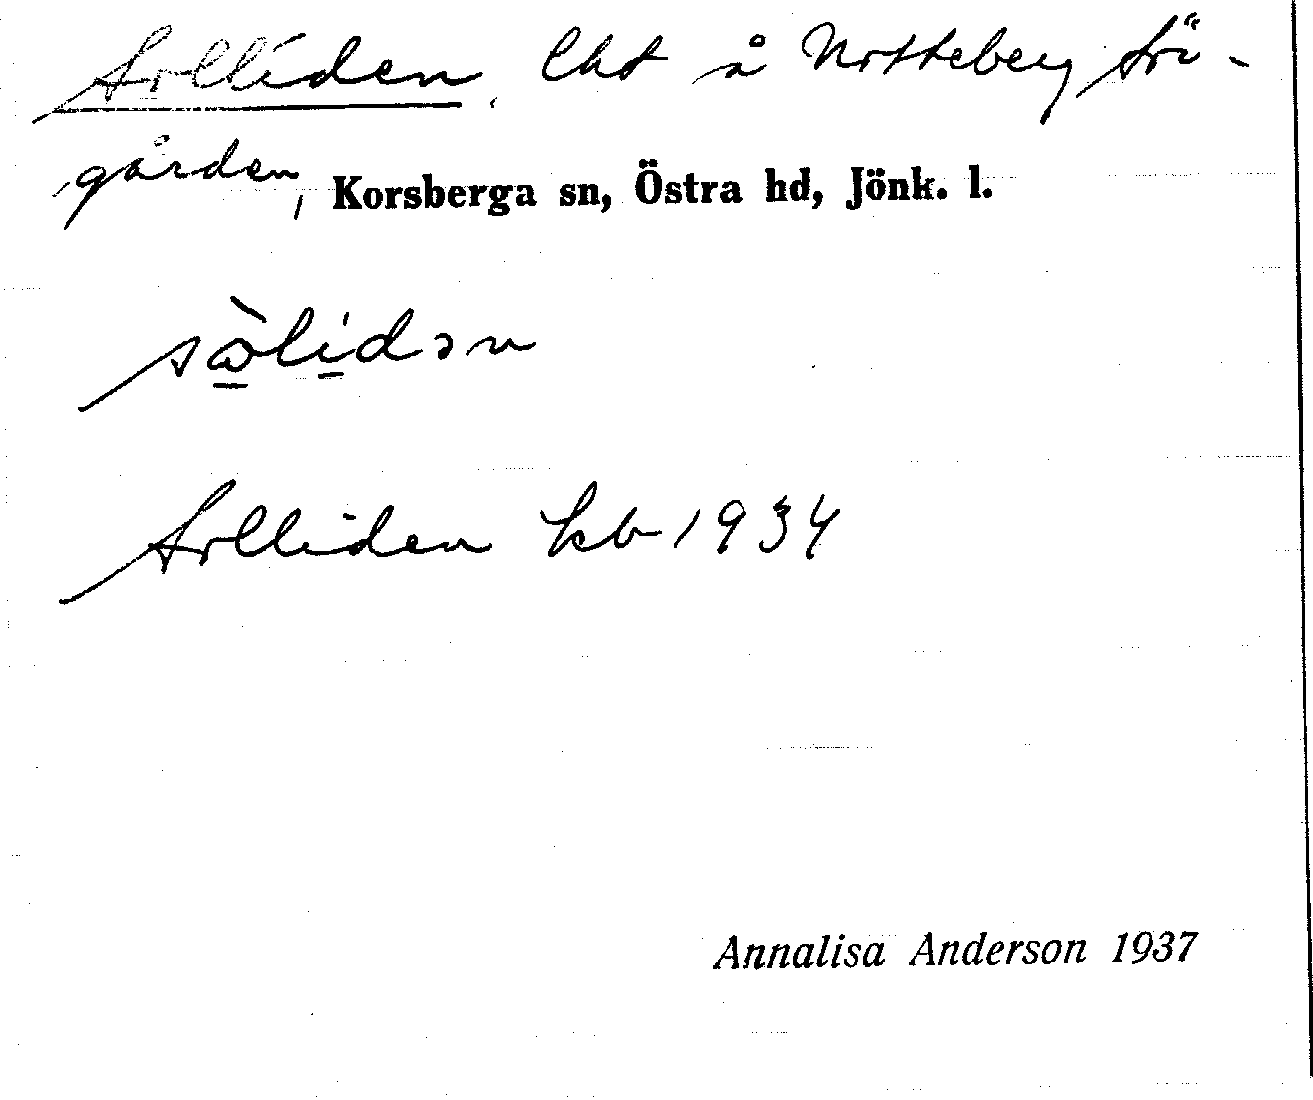 Solliden, lht å Notteberg Sör-
gården, Korsberga sn, Östra hd, Jönk. l.
Solliden kb 1934
Annalisa Anderson 1937